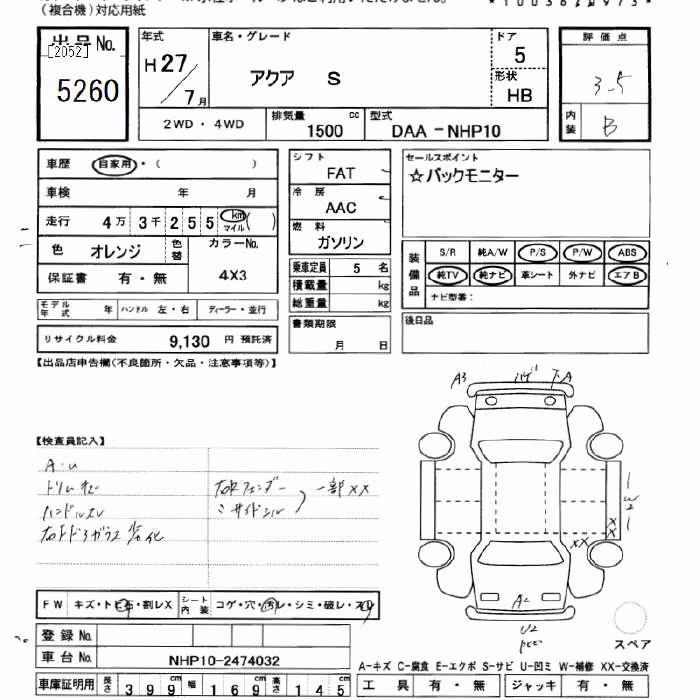 (複合機)対応用紙
出品No.
[2052]
5260
年式
H27/7月
車名・グレード
アクア S
ドア
5
形状
HB
2WD・4WD
排気量
1500 cc
型式
DAA-NHP10
評価点
3.5
内装
B
車歴 自家用・( )
車検 年 月
走行 4万3千255 km マイル ( )
色 オレンジ 色替 カラーNo.
4X3
保証書 有・無
モデル年式 年 ハンドル 左・右 ディーラー・並行
リサイクル料金 9,130 円 預託済
シフト
FAT
冷房
AAC
燃料
ガソリン
乗車定員 5 名
積載量 kg
総重量 kg
書類期限
月 日
セールスポイント
☆バックモニター
装備品
S/R 純A/W P/S P/W ABS
純TV 純ナビ 革シート 外ナビ エアB
ナビ型番:
後日品
【出品店申告欄(不良箇所・欠品・注意事項等)】
【検査員記入】
A・U
ハンドルスレ
一部XX
A3
A
W2
XX
A2
U2
スペア
FW キズ・トビ石・割レX シート内装 コゲ・穴・汚レ・シミ・破レ・スレ
登録No.
車台No. NHP10-2474032
車庫証明用 長さ 399 cm 幅 169 cm 高さ 145 cm
A-キズ C-腐食 E-エクボ S-サビ U-凹ミ W-補修 XX-交換済
工具 有・無 ジャッキ 有・無